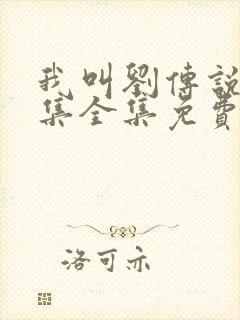 我叫劉傳說
集全集免費
洛可亦